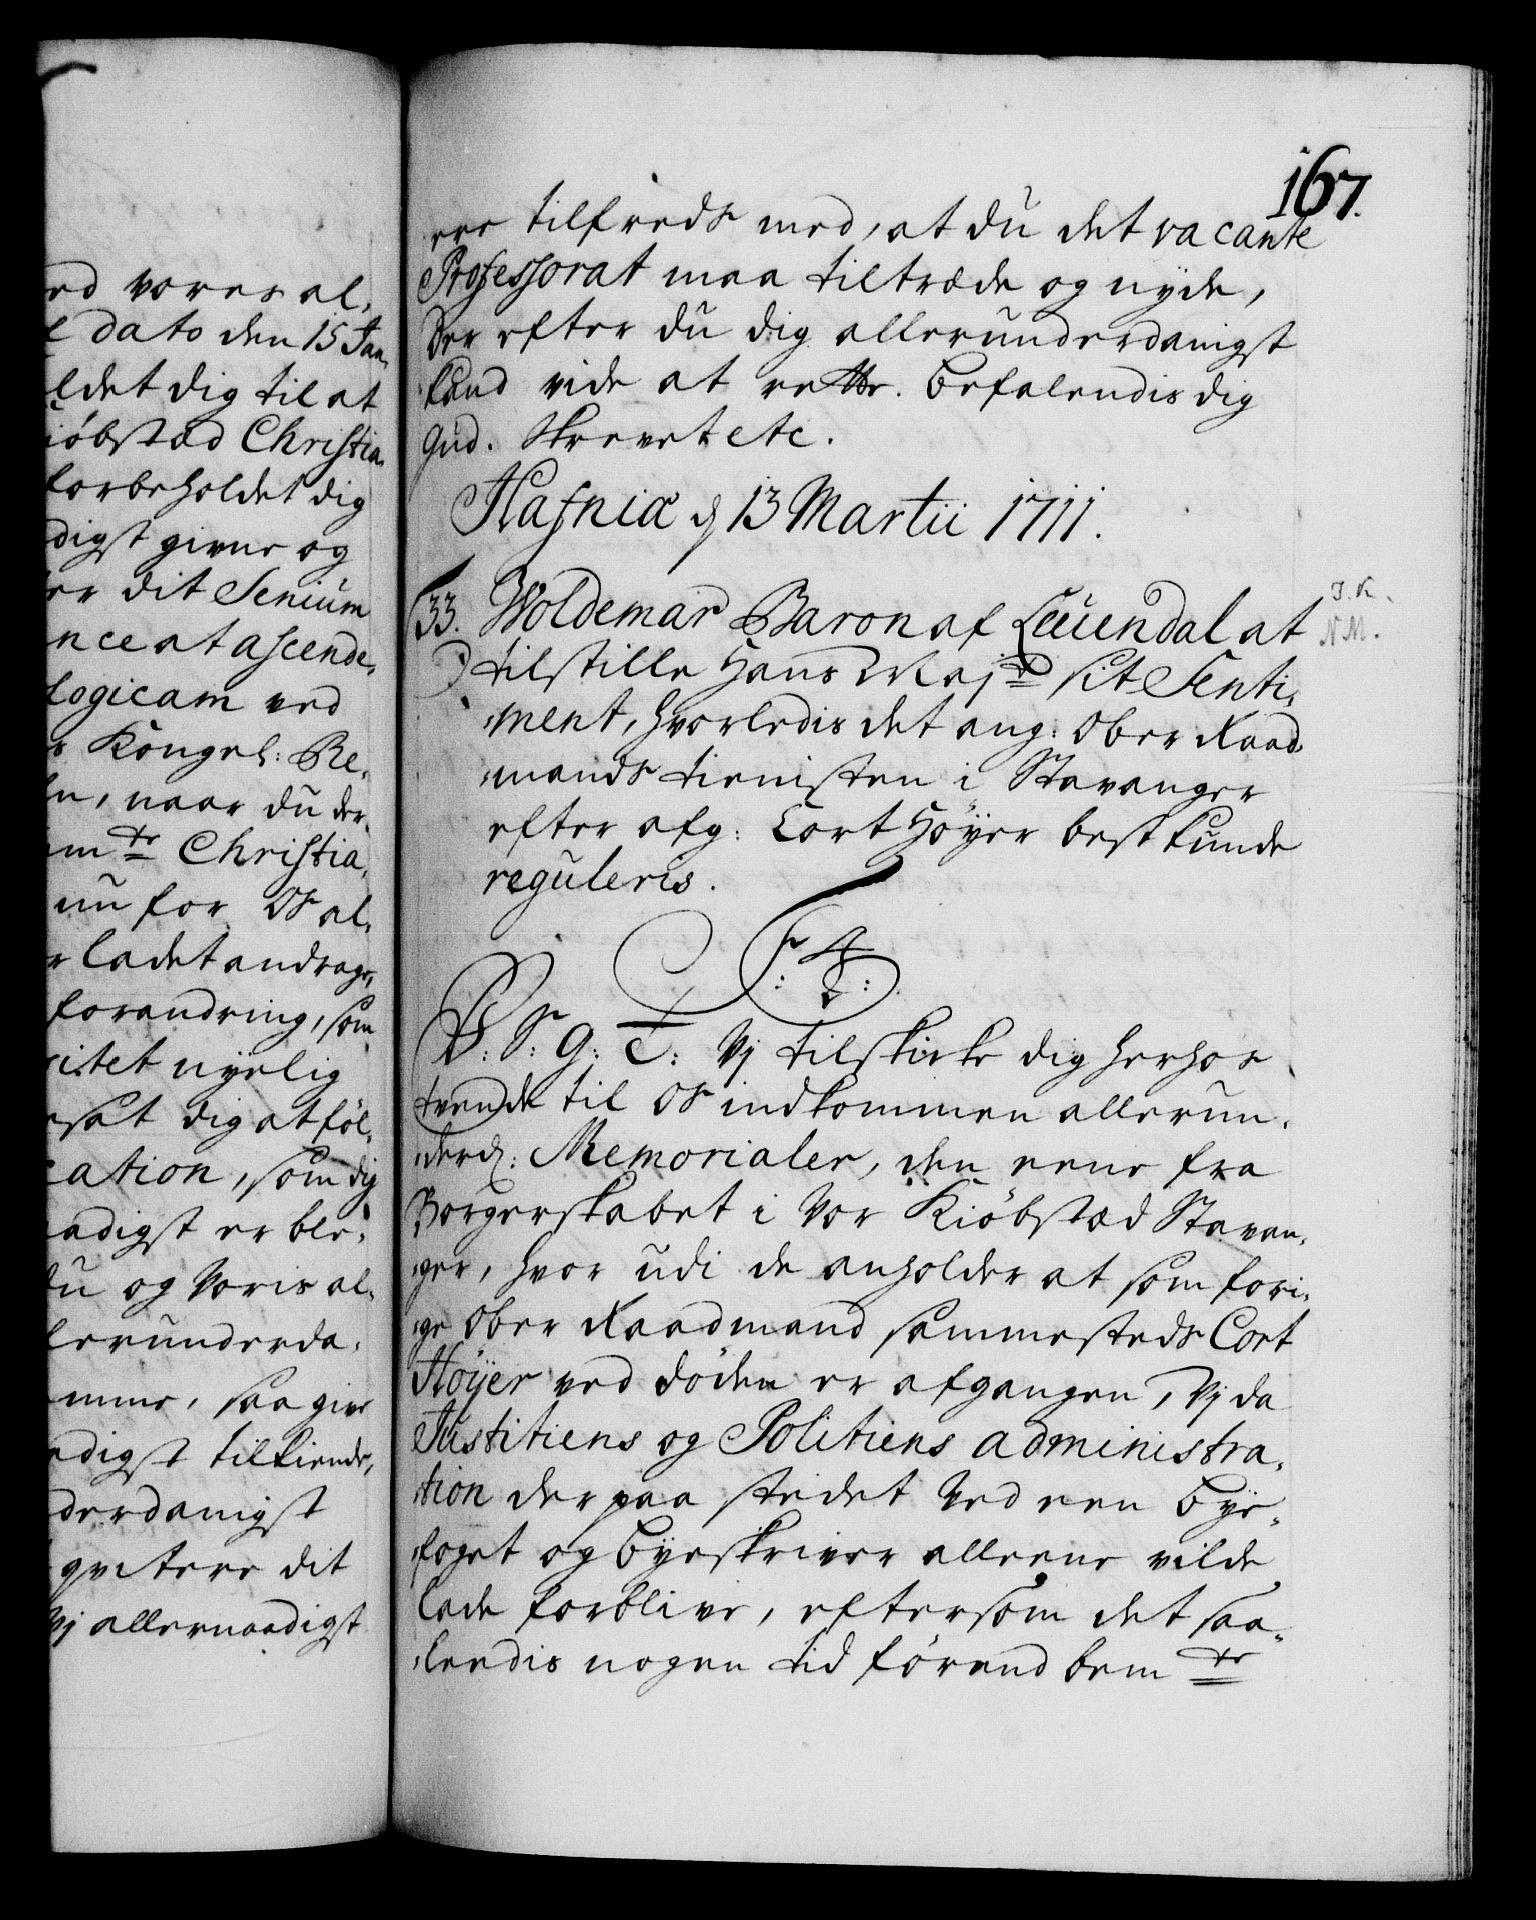 ed vores al,
e dato den 15 Jan,
ldet dig til at
iöbstæd Christia,
forbeholdet dig
digst givne og
er dit Senium
nce at ascende,
logicam ved
s Kongel: Be,
n, naar du der,
em te Christia,
nu for Os al,
r ladet andrage,
forandring, som
citet nyelig
sat dig at föl,
cation, som dig
aadigst er ble,
du og Voris al,
lerunderda,
mme, saa give
adigst tilkiende,
derdanigst
qvitere dit
Vj allernaadigst
167.
ere tilfreds med, at du det vacante
Professorat maa tiltræde og nyde,
Der efter du dig allerunderdanigst
kand vide at rette. Befalendis dig
Gud. Skrevet etc.
Hafniæ d 13 Martii 1711.
33. Woldemar Baron af Leuendal at
tilstille Hans Majts sit Senti,
ment, hvorledis det ang: Ober Raad
mands tienisten i Stavanger
efter afg: Cort Höyer best kunde
reguleris.
J. K.
N M.
F: 4:
V: S: G: T: Vj tilskicke dig herhos
tvende til Os indkommen allerun,
derd: Memorialer, den eene fra
Borgerskabet i Vor Kiöbstæd Stavan,
ger, hvor udi de anholder at som fori,
ge Ober Raadmand sammesteds Cort
Höyer ved döden er afgangen, Vj da
Justitiens og Politiens administra,
tion der paa stedet Ved een Bye,
foget og Byeskriver alleene vilde
lade forblive, eftersom det saa,
leedis nogen tid förend bem te